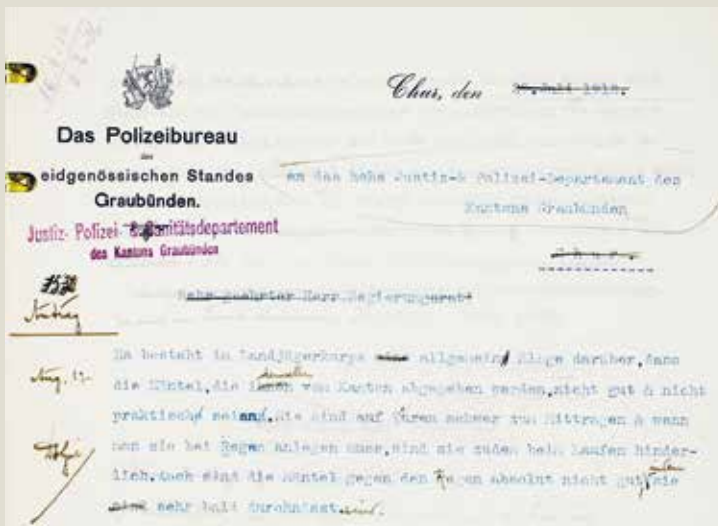 Chur, den 25. Juli 1918.
Das Polizeibureau
des
eidgenössischen Standes
Graubünden.
an das hohe Justiz-& Polizei-Departement des
Kantons Graubünden
Chur.
Justiz- Polizei- & Sanitätsdepartement
des Kantons Graubünden
Sehr geehrter Herr Regierungsrat!
Antrag
Es besteht im Landjägerkorps eine allgemeine Klage darüber, dass
die Mäntel, die ihnen vom Kanton abgegeben werden, nicht gut & nicht
praktisch seien. Sie sind auf Touren schwer zum Mittragen & wenn
man sie bei Regen anlegen muss, sind sie zudem beim Laufen hinder-
lich. Auch sind die Mäntel gegen den Regen absolut nicht gut, sie
sind sehr bald durchnässt